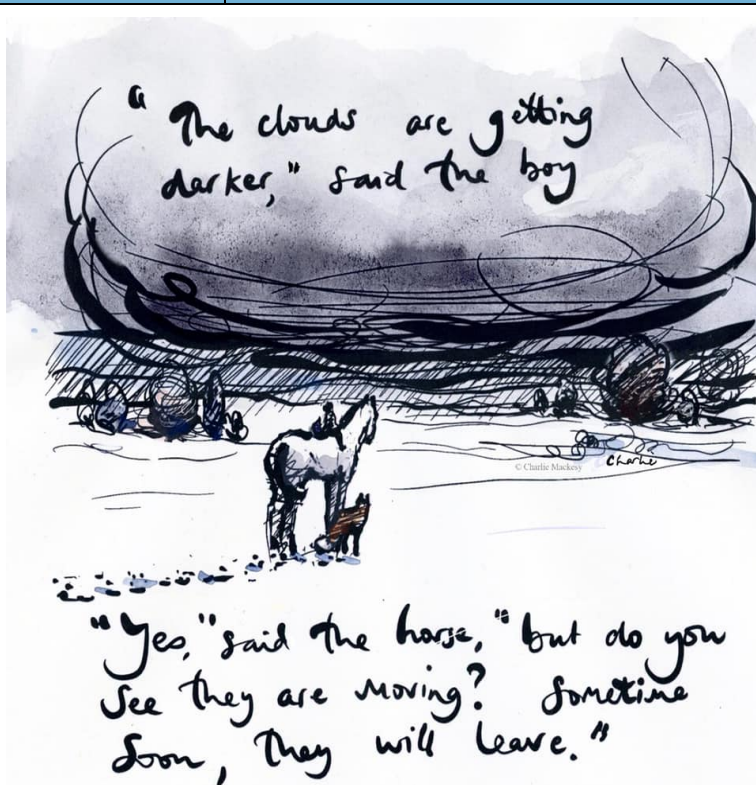 "The clouds are getting
darker," said the boy
© Charlie Mackesy
Charlie
"Yes," said the horse, "but do you
see they are moving? Sometime
soon, they will leave."